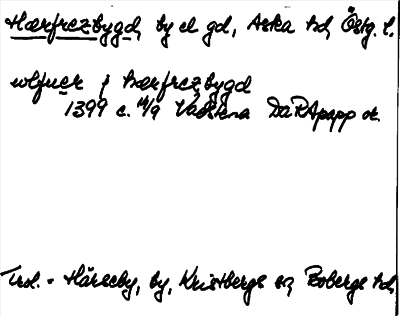 Hærfrezbygd, by el gd, Aska hd, Östg. l.
ulfuer j hærfrezbygd
1399 c. 14/9 Vadstena DaRApapp or.
Trol. = Häreby, by, Kristbergs sn, Bobergs hd,